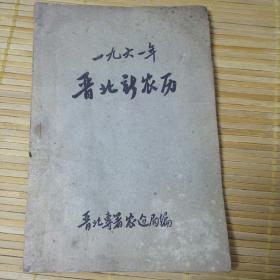 一九六一年
晋北新农历
晋北专署农建局编